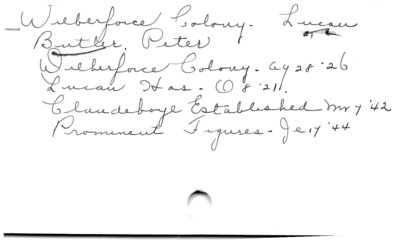 Wilberforce Colony. Lucan
Butler, Peter
Wilberforce Colony. ag 28 '26
Lucan Has - O 8 '21.
Claudeboye Established Mr 7 '42
Prominent Figures - Je 17 '44